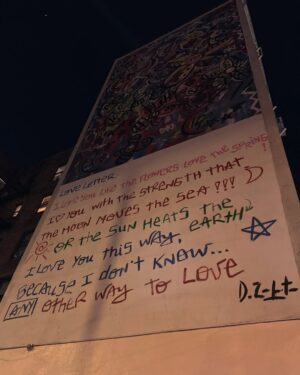 LOVE LETTER
I LOVE YOU LIKE THE FLOWERS LOVE THE SPRING!
I ♡ YOU WITH THE STRENGTH THAT
THE MOON MOVES THE SEA???
OR THE SUN HEATS THE EARTH?
I LOVE YOU THIS WAY,
BECAUSE I DON'T KNOW...
ANY OTHER WAY TO LOVE